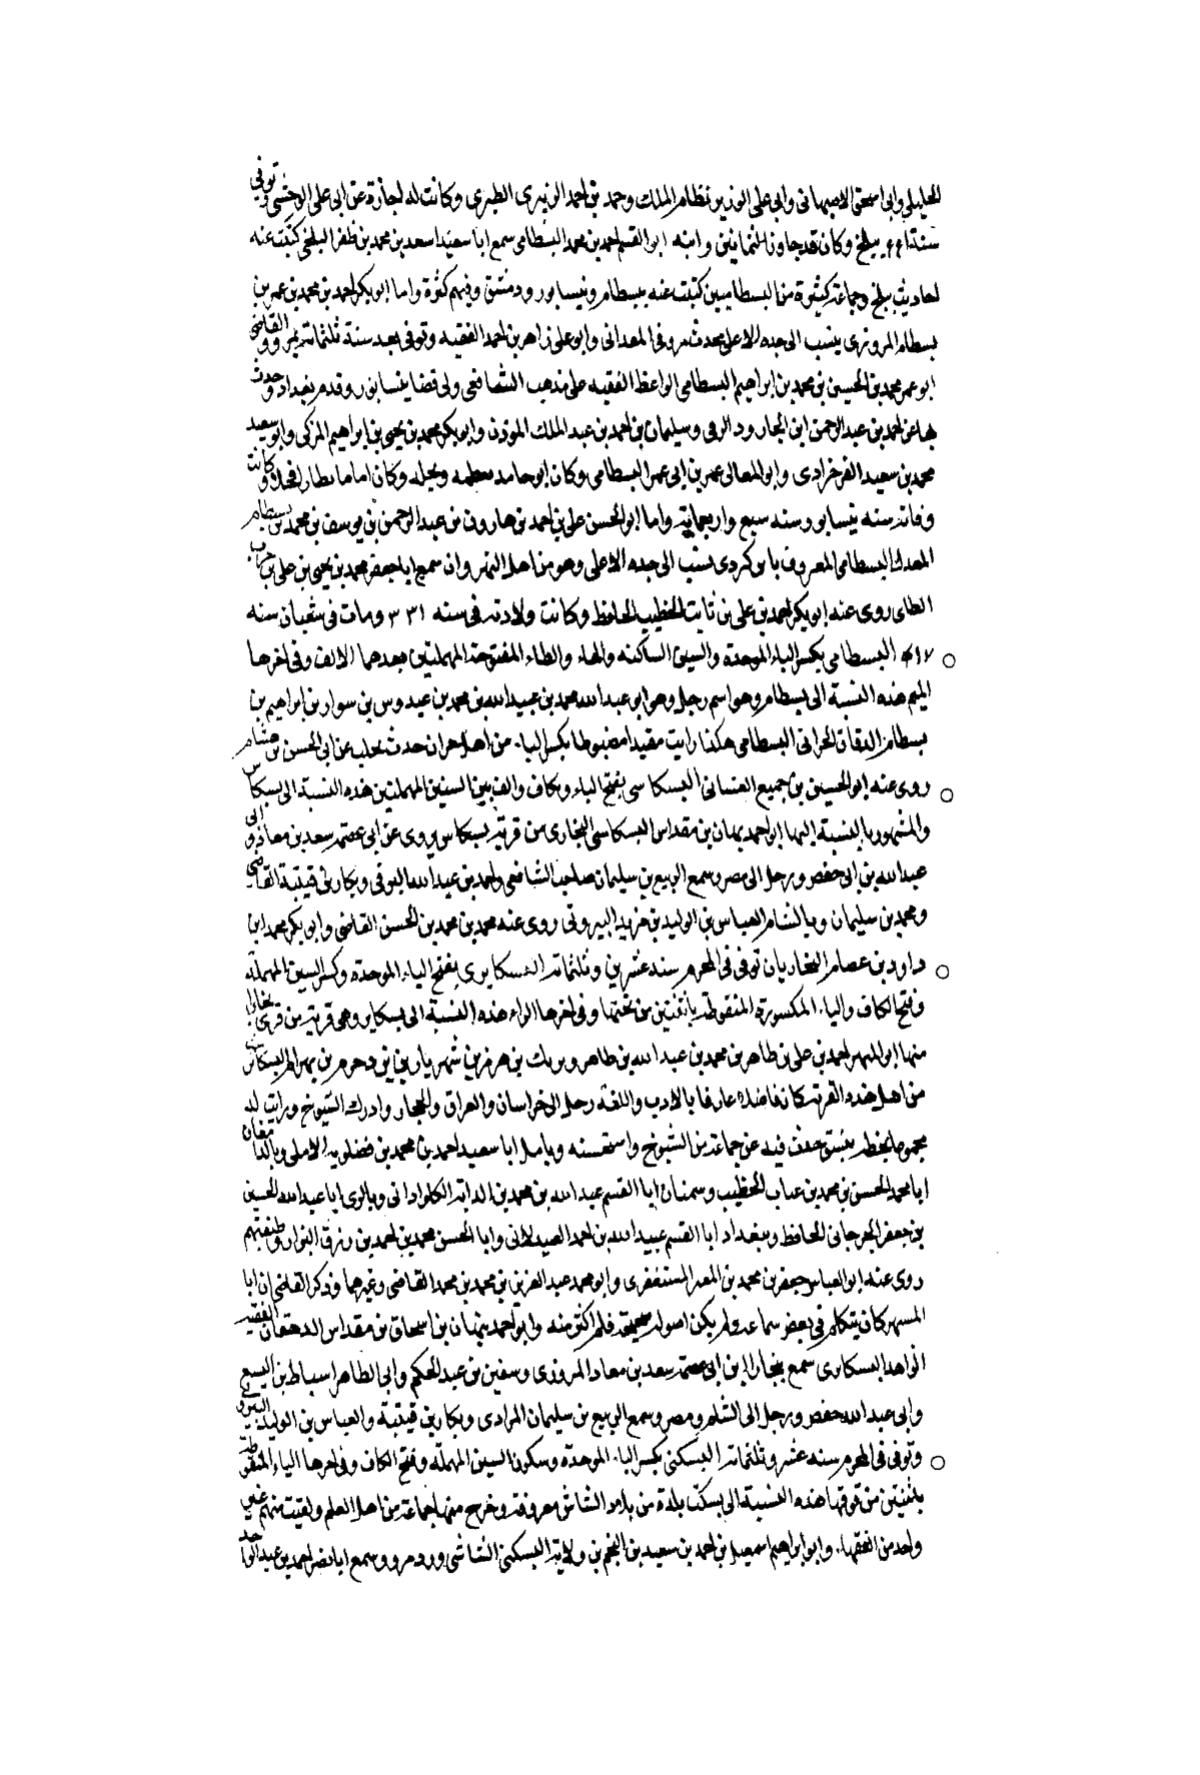 الخليلي وابي اسحق الاصبهاني وابي علي الوزير نظام الملك وحمد بن احمد الزبيري الطبري وكانت له اجازة عن ابي علي الوخشي وتوفي
سنة ٤٤١ ببلخ وكان قد جاوز الثمانين وابنه ابو القسم احمد بن محمد البسطامي سمع ابا سعيد اسعد بن محمد بن ظفر البلخي كتبت عنه
احاديث ببلخ وجماعة كثيرة من البسطاميين كتبت عنه ببسطام ونيسابور ودمشق وفيهم كثرة واما ابو بكر احمد بن محمد بن عمر بن
بسطام المروزي ينسب الى جده الاعلى محدث مروفي المعداني وابو علي زاهر بن احمد الفقيه وتوفي بعد سنة ثلثمائة بمرو والقاضي
ابو عمر محمد بن الحسين بن محمد بن ابراهيم البسطامي الواعظ الفقيه على مذهب الشافعي ولي قضا نيسابور وقدم بغداد وحدث
بها عن احمد بن عبد الرحمن ابن الجارود الرقي وسليمان بن احمد بن عبد الملك المؤذن وابو بكر محمد بن يحيى بن ابراهيم المزكي وابو سعيد
محمد بن سعيد الفرخزادي وابو المعالي عمر بن ابي عمر البسطامي وكان ابو حامد يعظمه ويجله وكان اماما نظارا فحلا وكانت
وفاته سنه نيسابور سنه سبع واربعمائة واما ابو الحسن علي بن احمد بن هارون بن عبد الرحمن بن يوسف بن محمد بن بسطام
المعدل البسطامي المعروف بابن كردي نسب الى جده الاعلى وهو من اهل النهروان سمع ابا جعفر محمد بن يحيى بن علي بن حرب
الطاي روى عنه ابو بكر احمد بن علي بن ثابت الخطيب الحافظ وكانت ولادته في سنه ٣٣١ ومات في شعبان سنه
٤١٧ البسطامي بكسر الباء الموحدة والسين الساكنه والهاء والطاء المفتوحة المهملتين بعدهما الالف وفي اخرها
الميم هذه النسبة الى بسطام وهو اسم رجل وهو ابو عبد الله محمد بن عبيد الله بن محمد بن عبدوس بن سوار بن ابراهيم بن
بسطام الدقاق الحراني البسطامي هكذا رايت مقيدا مضبوطا بكسر البا، من اهل حران حدث بحلب عن ابي الحسن بن هشام
روى عنه ابو الحسين بن جميع الغساني البسكاسي بفتح الباء وبكاف والف بين السينين المهملتين هذه النسبة الى بسكاس
والمشهور بالنسبة اليها ابو احمد نبهان بن مقداس البسكاسي البخاري من قرية بسكاس يروى عن ابي عصمة سعد بن معاذ وابي
عبد الله بن ابي حفص ورحل الى مصر وسمع الربيع بن سليمان صاحب الشافعي واحمد بن عبد الله البرقي وبكار بن قتيبة القاضي
ومحمد بن سليمان وبالشام العباس بن الوليد بن مزيد البيروتي روى عنه محمد بن محمد بن الحسن القاضي وابو بكر محمد ابن
داود بن عصام البخاريان توفي في المحرم سنه عشرين وثلثمائة البسكايري بفتح الباء الموحدة وكسر السين المهملة
وفتح الكاف والياء المكسورة المنقوطة باثنتين من تحتها وفي اخرها الراء هذه النسبة الى بسكاير وهي قرية من قرى بخارا
منها ابو المشهر احمد بن علي بن طاهر بن محمد بن عبد الله بن طاهر وبربك بن هرمز بن شهريار بن بن وحرمر بن بهرام البسكايري
من اهل هذه القرية كان فاضلا عارفا بالادب واللغة رحل الى خراسان والعراق والحجاز وادرك الشيوخ ورايت له
مجموعا بخطه جمعت فيه عن جماعة من الشيوخ واستحسنه وبامل ابا سعيد احمد بن محمد بن فضلويه الاملي وبالدامغان
ابا محمد الحسن بن محمد بن عباب الخطيب وسمنان ابا القسم عبد الله بن محمد بن الداية الكلواذاني وبالري ابا عبد الله الحسين
بن جعفر الجرجاني الحافظ وببغداد ابا القسم عبيد الله بن احمد الصيدلاني وابا الحسن محمد بن احمد بن رزق البزار وطبقتهم
روى عنه ابو العباس جعفر بن محمد بن المعتز المستغفري وابو محمد عبد العزيز بن محمد بن محمد القاضي وغيرهما وذكر القاضي ان ابا
المسهر كان يتكلم في بعض سماعه ولم يكن اصوله صحيحة فلم اكثر منه وابو احمد نبهان بن اسحاق بن مقداس الدهقان الفقيه
الزاهد البسكايري سمع ببخارا ابن ابي عصمة سعد بن معاذ المروزي وسفين بن عبد الحكم وابي الطاهر اسباط بن اليسع
وابي عبد الله حفص ورحل الى الشام ومصر وسمع الربيع بن سليمان المرادي وبكار بن قتيبة والعباس بن الوليد البيروتي
وتوفي في المحرم سنه عشر وثلثمائة البسكتي بكسر الباء الموحدة وسكون السين المهملة وفتح الكاف وفي اخرها التاء المنقوطة
باثنتين من فوقها هذه النسبة الى بسكت بلدة من بلاد الشاش معروفة وخرج منها جماعة من اهل العلم ولقيت منهم غير
واحد من الفقهاء، وابو ابراهيم اسمعيل بن احمد بن سعيد بن النجم بن ولاية البسكتي الشاشي ورد مرو وسمع ابا نضر احمد بن عبد الواحد